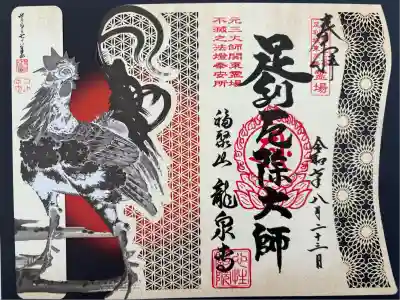 奉拝
足利厄除大師
元三大師関東霊場
不滅之法燈奉安所
福聚山 龍泉寺
令和六年八月二十三日